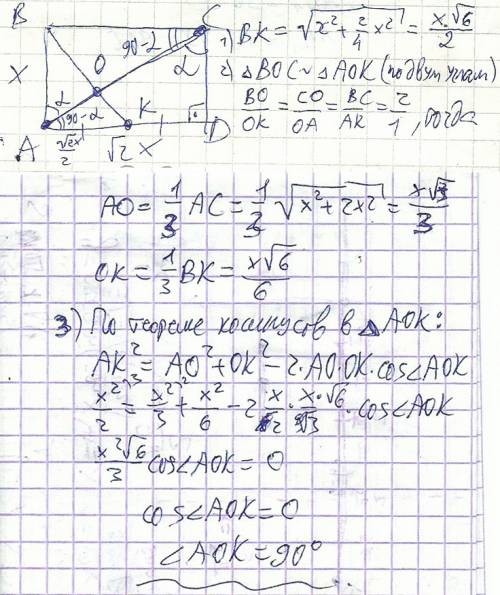 B C
90-α
1) BK = √(x² + 2/4 x²) = x·√6/2
X O α
2) △BOC ~ △AOK (по двум углам)
α K
BO/OK = CO/OA = BC/AK = 2/1, тогда
90-α
A √2x/2 √2 X D
AO = 1/3 AC = 1/3 √(x² + 2x²) = x√3/3
OK = 1/3 BK = x√6/6
3) По теореме косинусов в △AOK:
AK² = AO² + OK² - 2·AO·OK·cos∠AOK
x²/2 = x²/3 + x²/6 - 2 x· x·√6 · cos∠AOK
x²√6/3 cos∠AOK = 0
cos∠AOK = 0
∠AOK = 90°